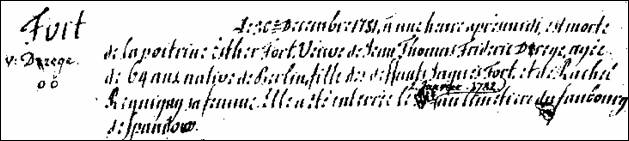 Fort
v: Derege.
Le 30me Decembre 1781, à une heure après midi, est morte
de la poitrine Esther Fort Veuve de Jean Thomas Frideric Derege, agée
de 64 ans native de Berlin, fille des deffunts Jaques Fort et de Rachel
sa femme. Elle a eté enterrée le 2 Janvier 1782 au Cimetiere du faubourg
de Spandow.